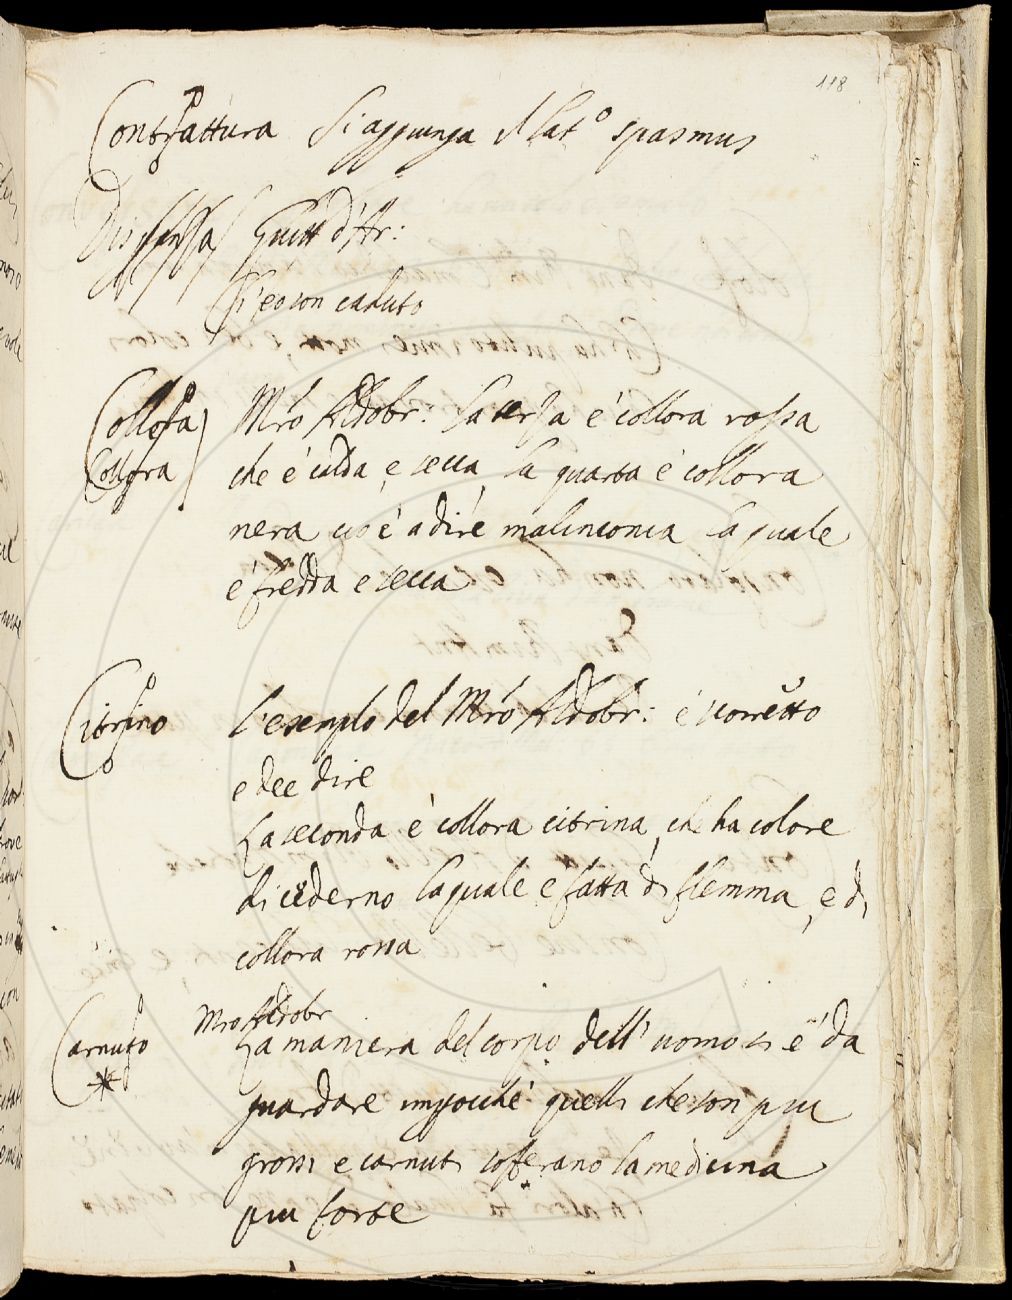 118
Contrattura Si aggiunga il lat.o spasmus
Guitt d'Ar:
Ch'eo son caduto
Collora Mro Aldobr: la terza é collora rossa
Collera che é calda, e secca, la quarta é collora
nera cio é a dire malinconia la quale
é fredda e secca
Citrino l'esemplo del Mro Aldobr: é scorretto
e dee dire
La seconda é collora citrina, che ha colore
di cederno la quale e fatta di flemma, e di
collora rossa
Mro Aldobr
Carnuto La maniera del corpo dell' uomo si é da
guardare impocché quelli che son piu
grossi e carnuti sofferano la medicina
piu forte